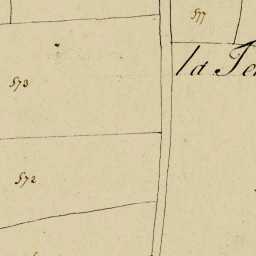 577
la
573
572